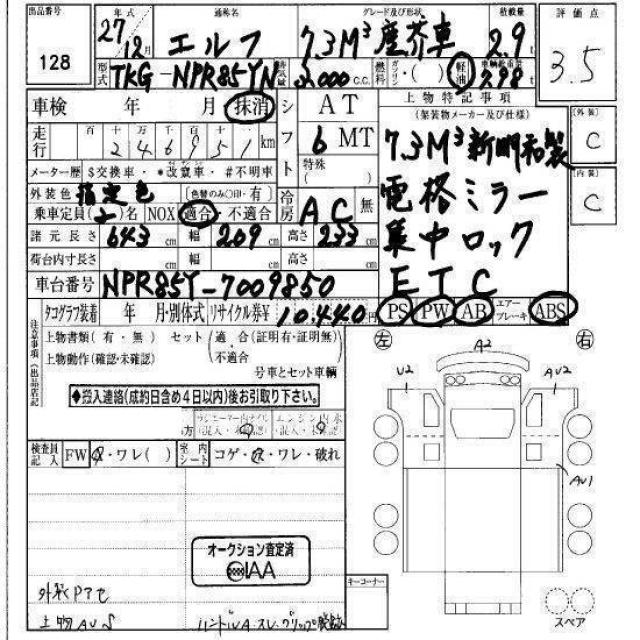 出品番号 年式 通称名 グレード及び形状 積載量 評価点
128 27年 12月 エルフ 7.3M³塵芥車 2.9t 3.5
型式 TKG-NPR85YN 排気量 3,000 c.c. 燃料 ガソリン・( ) 軽油 車輌総重量 798
車検 年 月 抹消 シフト AT 上物特記事項 [外装]
走行 百 十 万 千 百 十 一 246951 km 6 MT (架装物メーカー及び仕様) C
メーター歴 $交換車・*改竄車・#不明車 特殊 ( ) 7.3M³新明和製 [内装]
外装色 指定色 (色替のみ○印・有) 冷房 AC 無 電格ミラー C
乗車定員( )名 NOX 適合・不適合 集中ロック
諸元長さ 643cm 幅 209cm 高さ 233cm ETC
荷台内寸長さ cm 幅 cm 高さ cm
車台番号 NPR85Y-7009850
タコグラフ装着 年 月・別体式 リサイクル券¥ 10,440円 PS PW AB エアーブレーキ ABS
注意事項(出品店記
上物書類(有・無) セット 適合(証明有・証明無)
上物動作(確認・未確認) 不適合
号車とセット車輌
◆搬入連絡(成約日含め4日以内)後お引取り下さい。
左 右
A2
U2 AU2
AU1
検査員記入 FW ・ワレ( ) 室内シート コゲ・ ・ワレ・破れ
オークション査定済
JAAA
キーコーナー
外装Pアセ
上物AUS
ハンドルA・スレ・グリップ
スペア